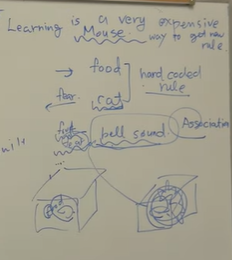 Learning is a very expensive
Mouse. way to get new
rule.
→ food
hard coded
rule
fear
cat
bell sound
Association